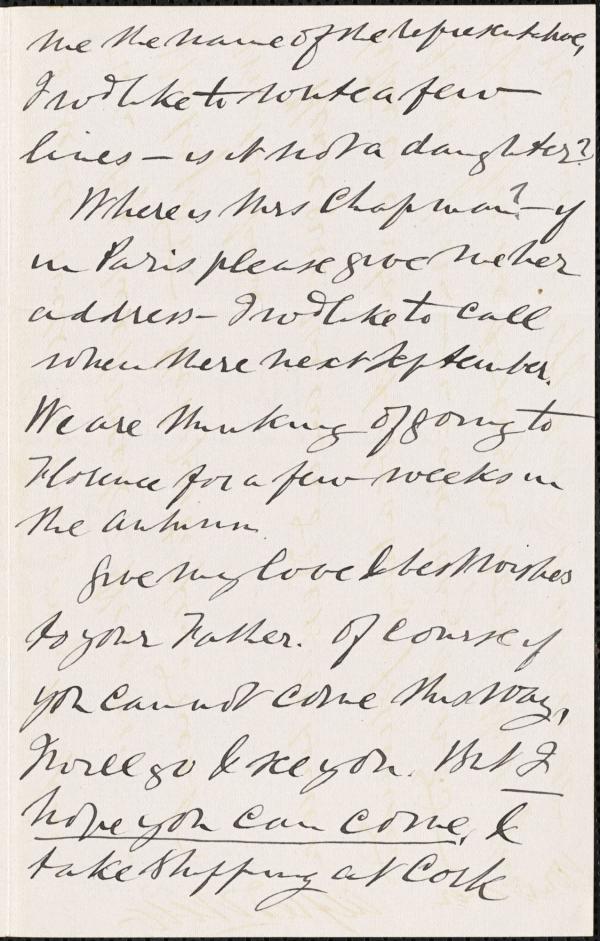 me the name of the representative,
I wd like to write a few
lines – is it not a daughter?
Where is Mrs Chapman? – if
in Paris please give me her
address – I wd like to call
when there next September.
We are thinking of going to
Florence for a few weeks in
the autumn.
Give my love & best wishes
to your Father. Of course if
you cannot come this way,
I will go & see you. But I
hope you can come, &
take shipping at Cork